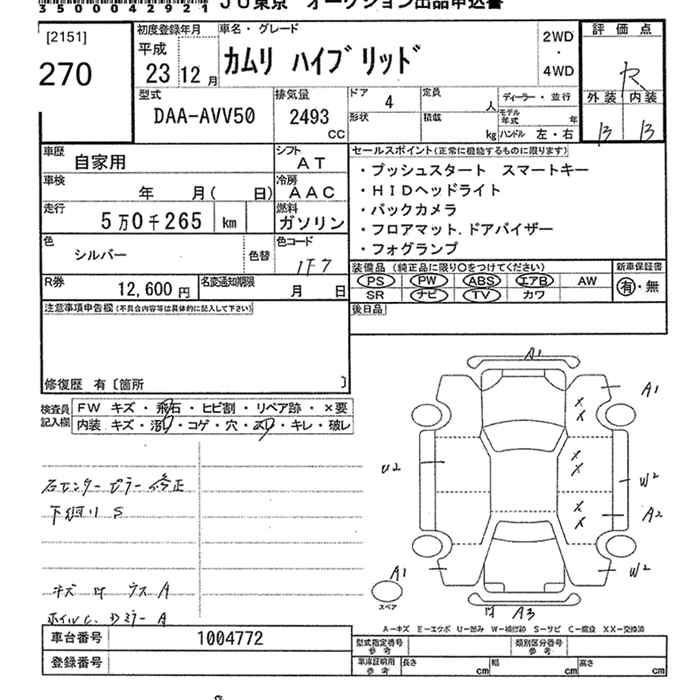 35000042921 JU東京 オークション出品申込書
[2151]
270
初度登録年月
平成
23 12 月
車名・グレード
カムリ ハイブリッド
2WD
・
4WD
評 価 点
R
外 装 内 装
B B
型式
DAA-AVV50
排気量
2493
CC
ドア 4
形状
定員 人
積載 kg
ディーラー・並行
モデル年式 年
ハンドル 左・右
車歴 自家用
シフト AT
車検 年 月( 日)
冷房 AAC
走行 5万0千265 km
燃料 ガソリン
色 シルバー
色替
色コード 1F7
R券 12,600 円
名変通知期限 月 日
セールスポイント(正常に機能するものに限ります)
・プッシュスタート スマートキー
・HIDヘッドライト
・バックカメラ
・フロアマット.ドアバイザー
・フォグランプ
装備品(純正品に限り○をつけてください)
PS PW ABS エアB AW
SR ナビ TV カワ
新車保証書
有・無
後日品
注意事項申告欄(不具合内容等は具体的に記入して下さい)
修復歴 有〔箇所 〕
検査員
記入欄
FW キズ・飛石・ヒビ割・リペア跡・×要
内装 キズ・汚れ・コゲ・穴・スリ・キレ・破レ
右センターピラー修正
下廻り S
キズ 凹 ウスA
ホイルC. Dミラー A
A1
A1
U2
W2
A2
W2
A1
スペア
凹 A3
A－キズ E－エクボ U－凹み W－補修跡 S－サビ C－腐蝕 XX－交換済
車台番号 1004772
登録番号
型式指定番号
参 考
類別区分番号
参 考
車庫証明用
参 考
長さ cm 幅 cm 高さ cm